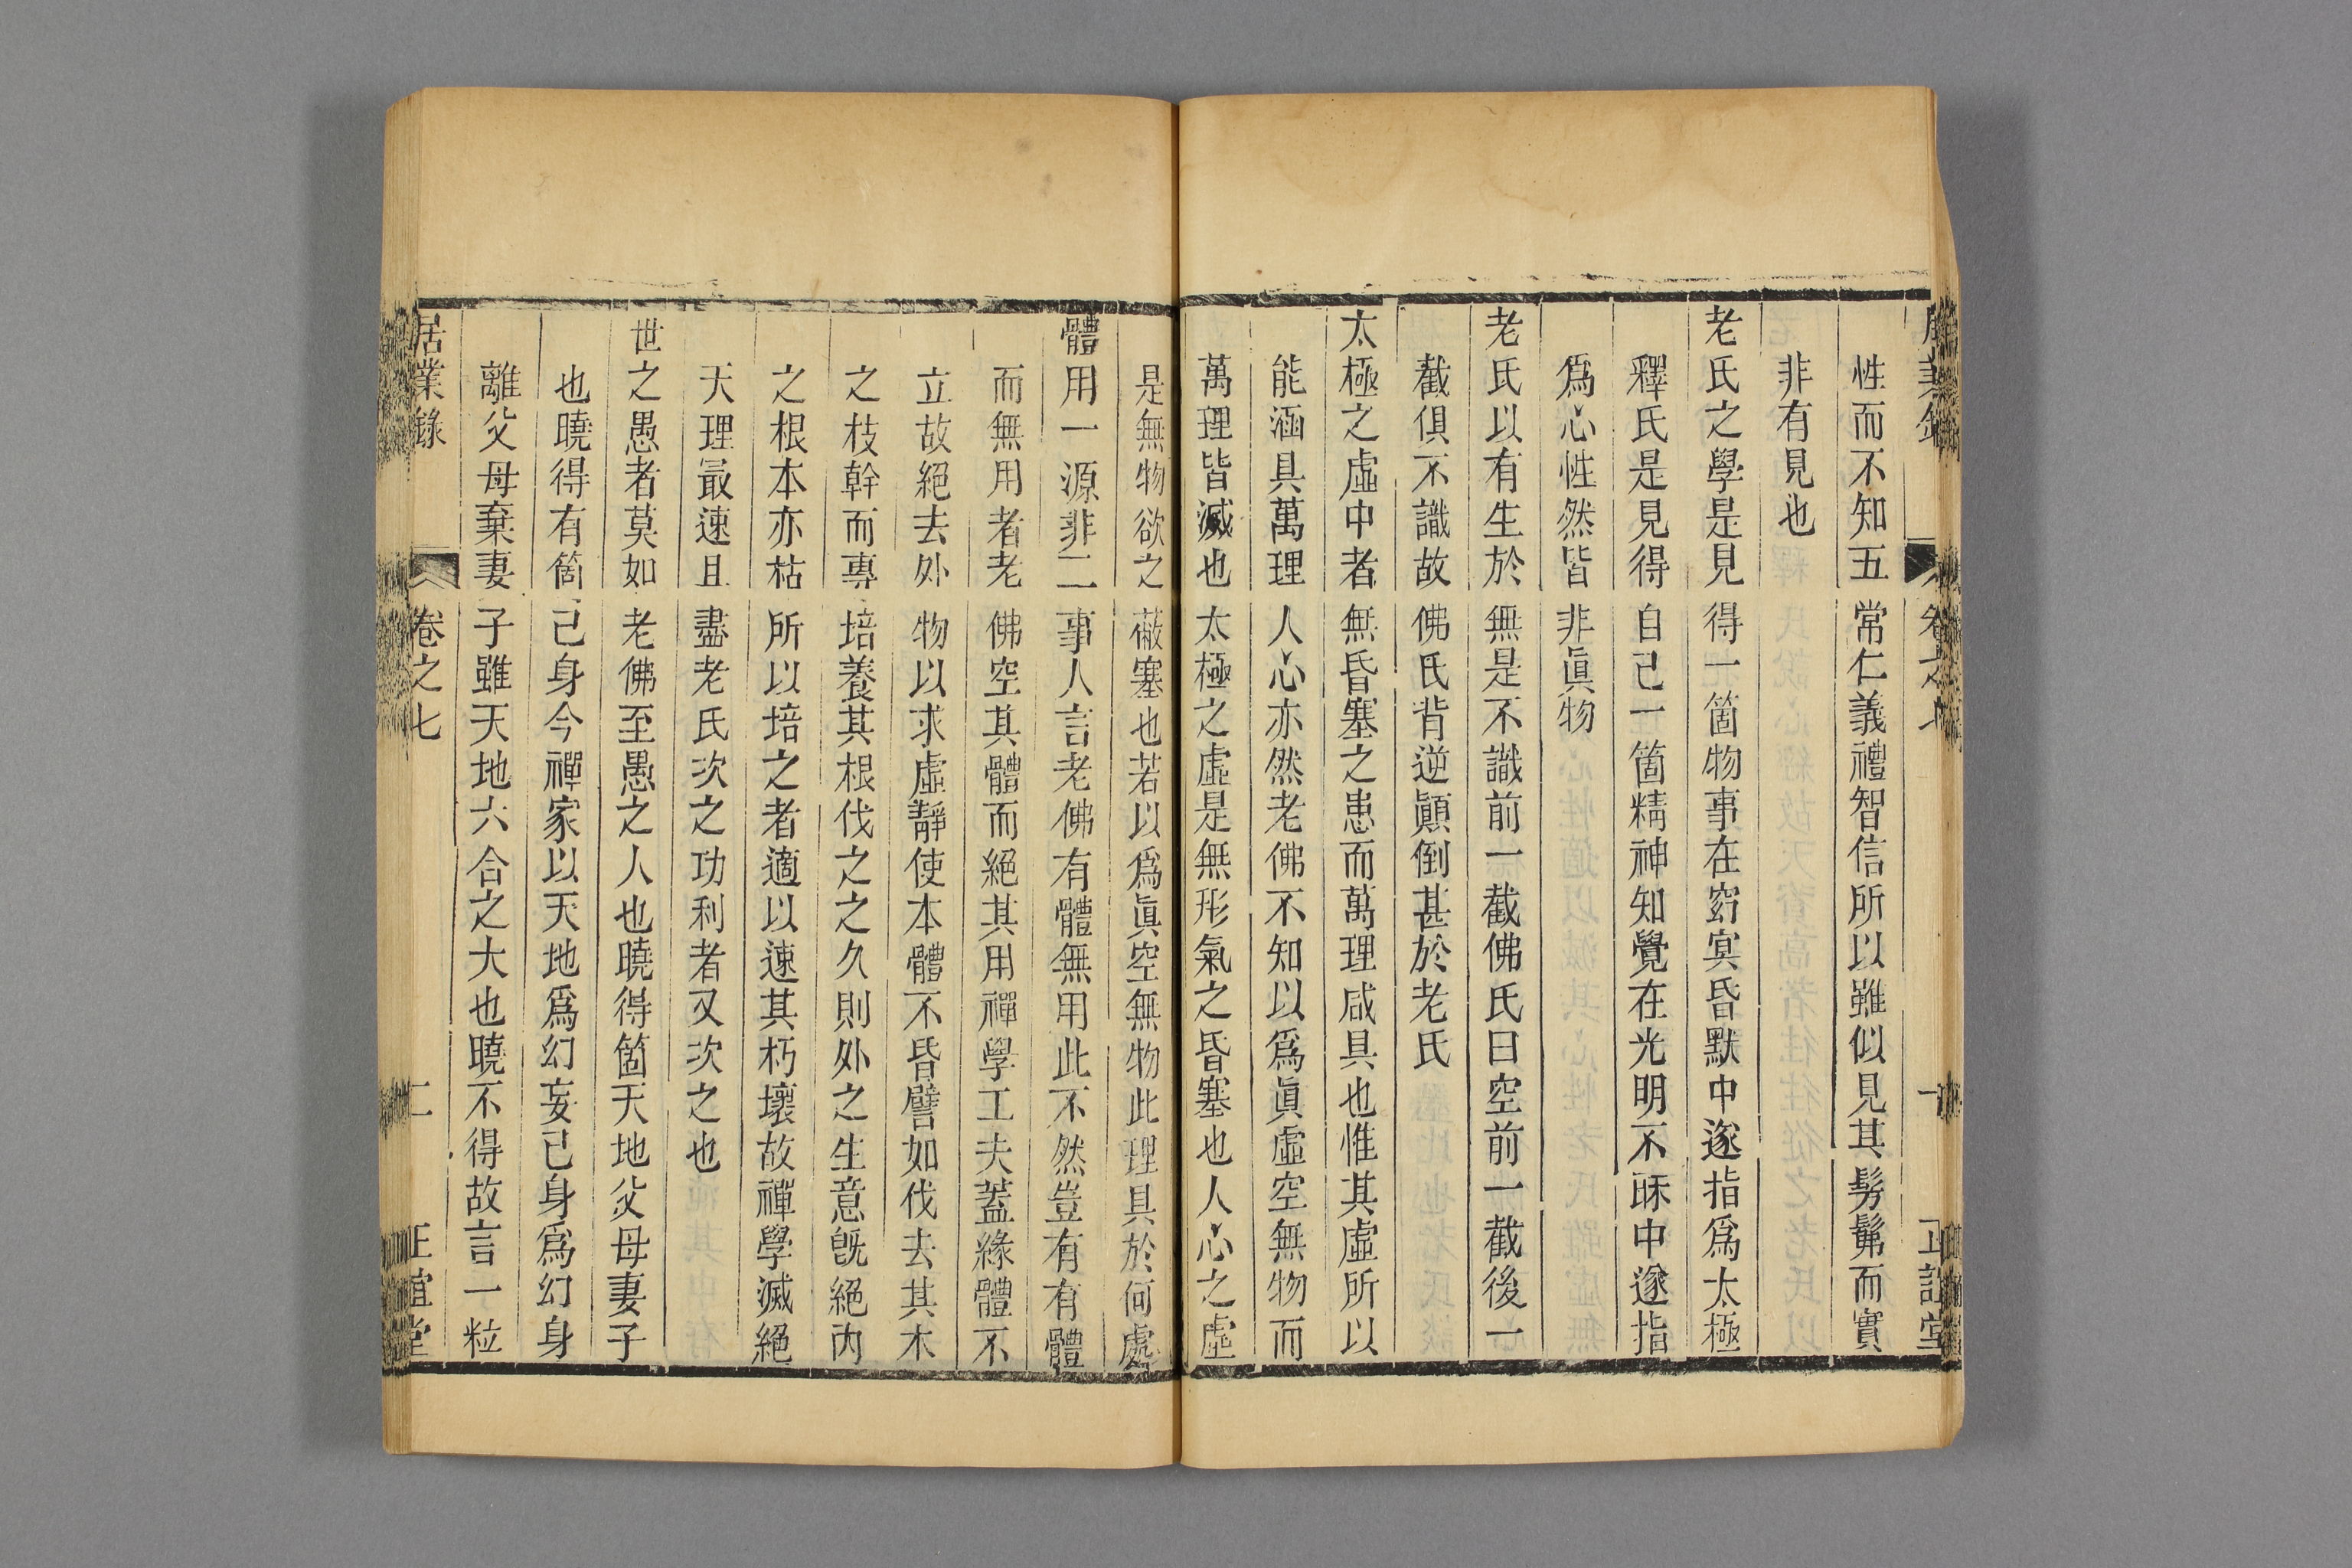 性而不知五常仁義禮智信所以雖似見其髣髴而實
非有見也
老氏之學是見得一箇物事在窈冥昏默中遂指爲太極
釋氏是見得自己一箇精神知覺在光明不昧中遂指
爲心性然皆非眞物
老氏以有生於無是不識前一截佛氏曰空前一截後一
截俱不識故佛氏背逆顚倒甚於老氏
太極之虛中者無昏塞之患而萬理咸具也惟其虛所以
能涵具萬理人心亦然老佛不知以爲眞虛空無物而
萬理皆滅也太極之虛是無形氣之昏塞也人心之虛
是無物欲之蔽塞也若以爲眞空無物此理具於何處
體用一源非二事人言老佛有體無用此不然豈有有體
而無用者老佛空其體而絕其用禪學工夫蓋緣體不
立故絕去外物以求虛靜使本體不昏譬如伐去其木
之枝幹而專培養其根伐之之久則外之生意旣絕內
之根本亦枯所以培之者適以速其朽壞故禪學滅絕
天理最速且盡老氏次之功利者又次之也
世之愚者莫如老佛至愚之人也曉得箇天地父母妻子
也曉得有箇己身今禪家以天地爲幻妄己身爲幻身
離父母棄妻子雖天地六合之大也曉不得故言一粒
居業錄 卷之七 二 正誼堂